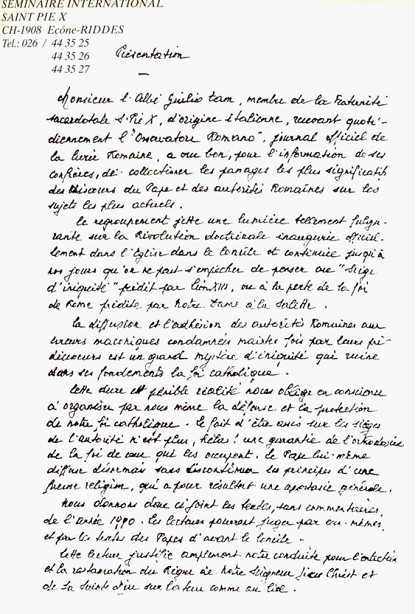 SÉMINAIRE INTERNATIONAL
SAINT PIE X
CH-1908 Ecône-RIDDES
Tel.: 026 / 44 35 25
44 35 26
44 35 27
Présentation
Monsieur l'Abbé Giulio Tam, membre de la Fraternité
sacerdotale S. Pie X, d'origine italienne, recevant quoti-
diennement l'"Osservatore Romano", journal officiel de
la Curie Romaine, a cru bon, pour l'information de ses
confrères, de collectionner les passages les plus significatifs
des discours du Pape et des autorités Romaines sur les
sujets les plus actuels.
Ce regroupement jette une lumière tellement fulgu-
rante sur la Révolution doctrinale inaugurée officiel-
lement dans l'Eglise dans le Concile et continuée jusqu'à
nos jours qu'on ne peut s'empêcher de penser au "Siège
d'iniquité" prédit par Léon XIII, ou à la perte de la foi
de Rome prédite par Notre Dame à la Salette.
La diffusion et l'adhésion des autorités Romaines aux
erreurs maçoniques condamnées maintes fois par leurs pré-
décesseurs est un grand mystère d'iniquité qui ruine
dans ses fondements la foi catholique.
Cette dure et pénible réalité nous oblige en conscience
à organiser par nous même la défense et la protection
de notre foi catholique. Le fait d'être assis sur les sièges
de l'autorité n'est plus, hélas! une garantie de l'orthodoxie
de la foi de ceux qui les occupent. Le Pape lui-même
diffuse désormais sans discontinuer les principes d'une
fausse religion, qui a pour résultat une apostasie générale.
Nous donnons donc ci joint les textes, sans commentaires,
de l'année 1990. Les lecteurs pourront juger par eux-mêmes,
et par les textes des Papes d'avant le Concile.
Cette lecture justifie amplement notre conduite pour l'entretien
et la restauration du Règne de Notre Seigneur Jésus Christ et
de sa Sainte Mère sur la terre comme au Ciel.